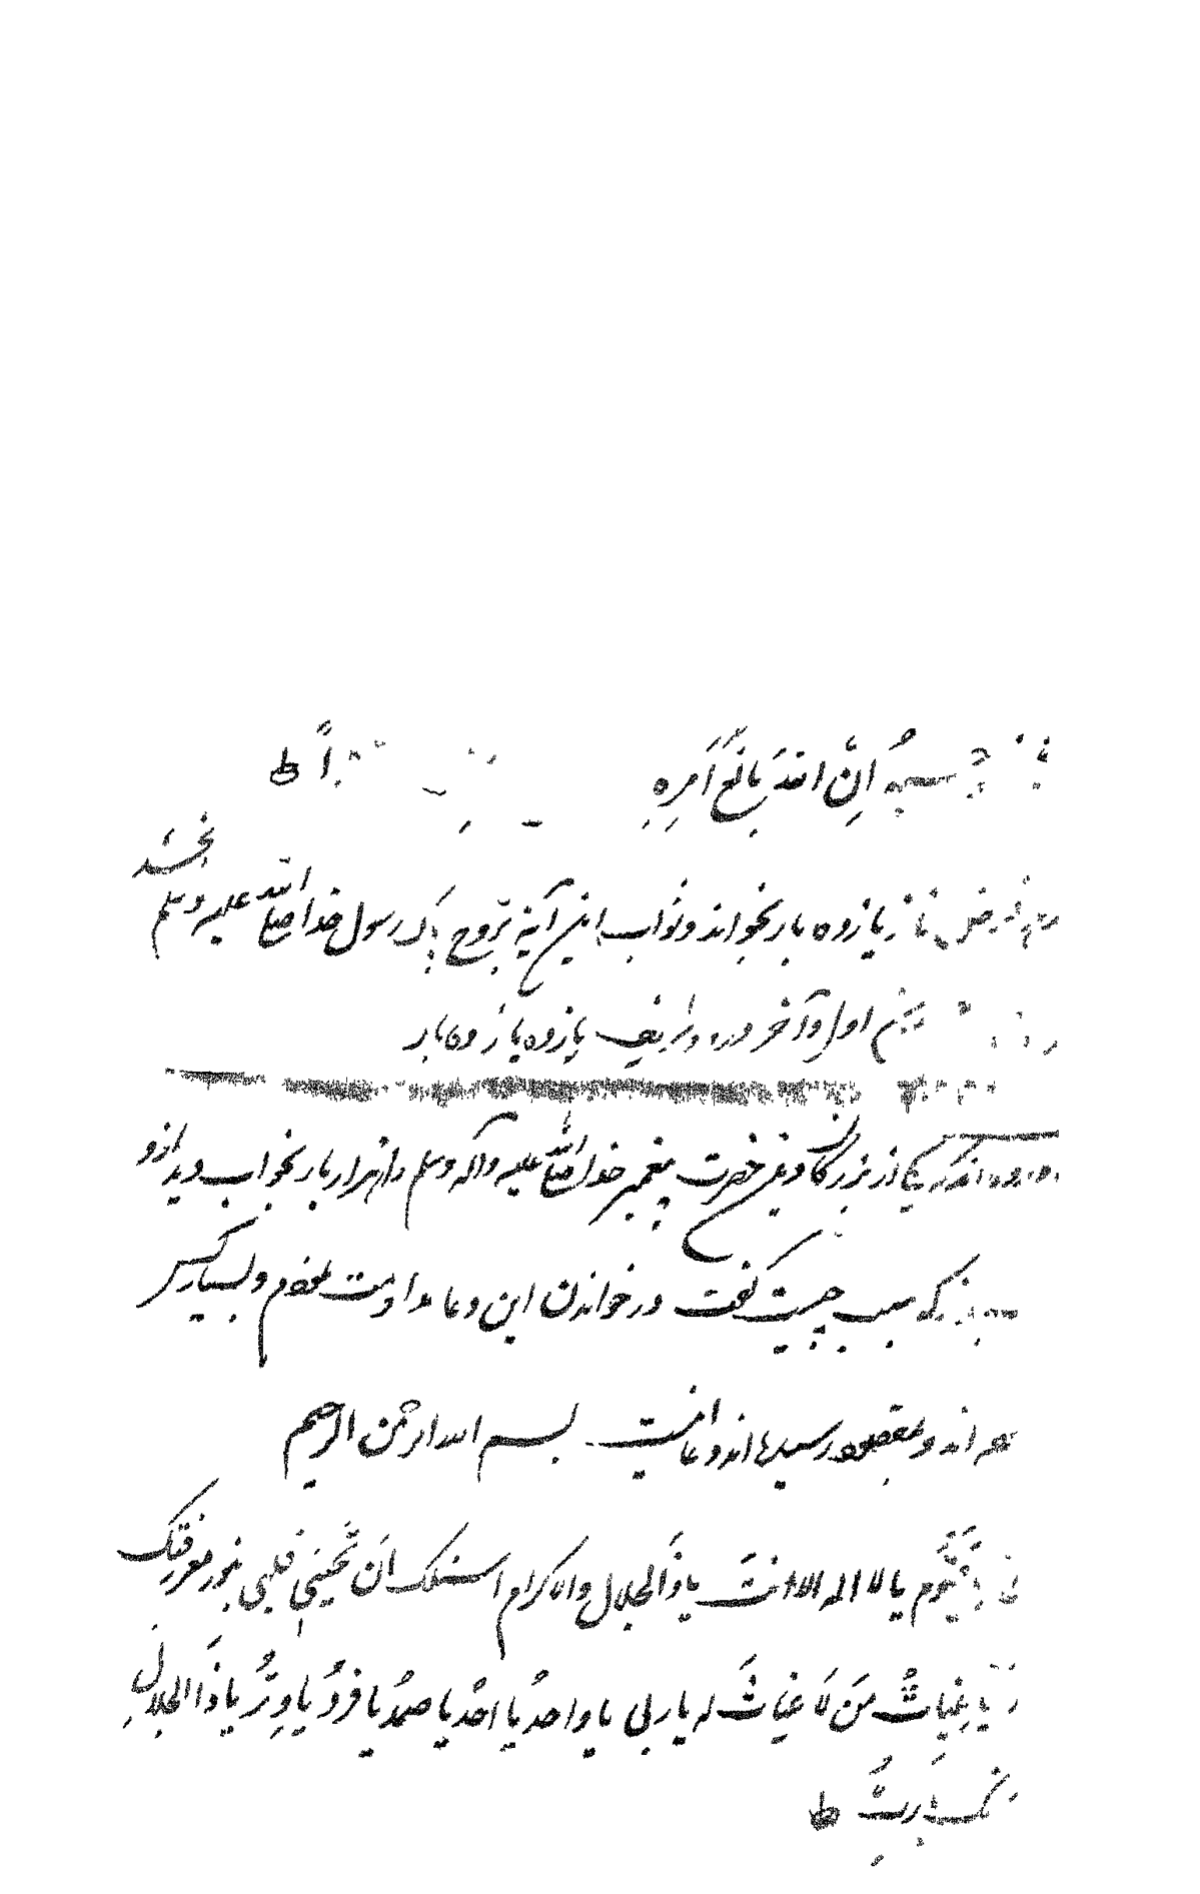 حسبه اِنَّ اللهَ بالغُ اَمرِه اً ط
نماز یازده بار بخواند و ثواب این آیة بروح پاک رسول خدا صلی الله علیه وسلم بخشد
اول و آخر درود شریف یازده یازده بار
آورده اند که یکی از بزرگان دین حضرت پیغمبر خدا صلی الله علیه وآله وسلم را هزار بار بخواب دید ازو
که سبب چیست گفت در خواندن این دعا مداومت نمودم و بسیار کس
اند و بمقصود رسیدها اند دعا اینست بسم الله الرحمن الرحیم
قیوم یا لا اله الا انت یا ذَالجلال والاکرام اسئلک اَن تحیی قلبی بنور معرفتک
یا غیاثُ مَن لَا غیاثَ له یا ربی یا واحدُ یا احدُ یا صمدُ یا فردُ یا وِترُ یا ذَا الجلالِ
یا ربُّ ط